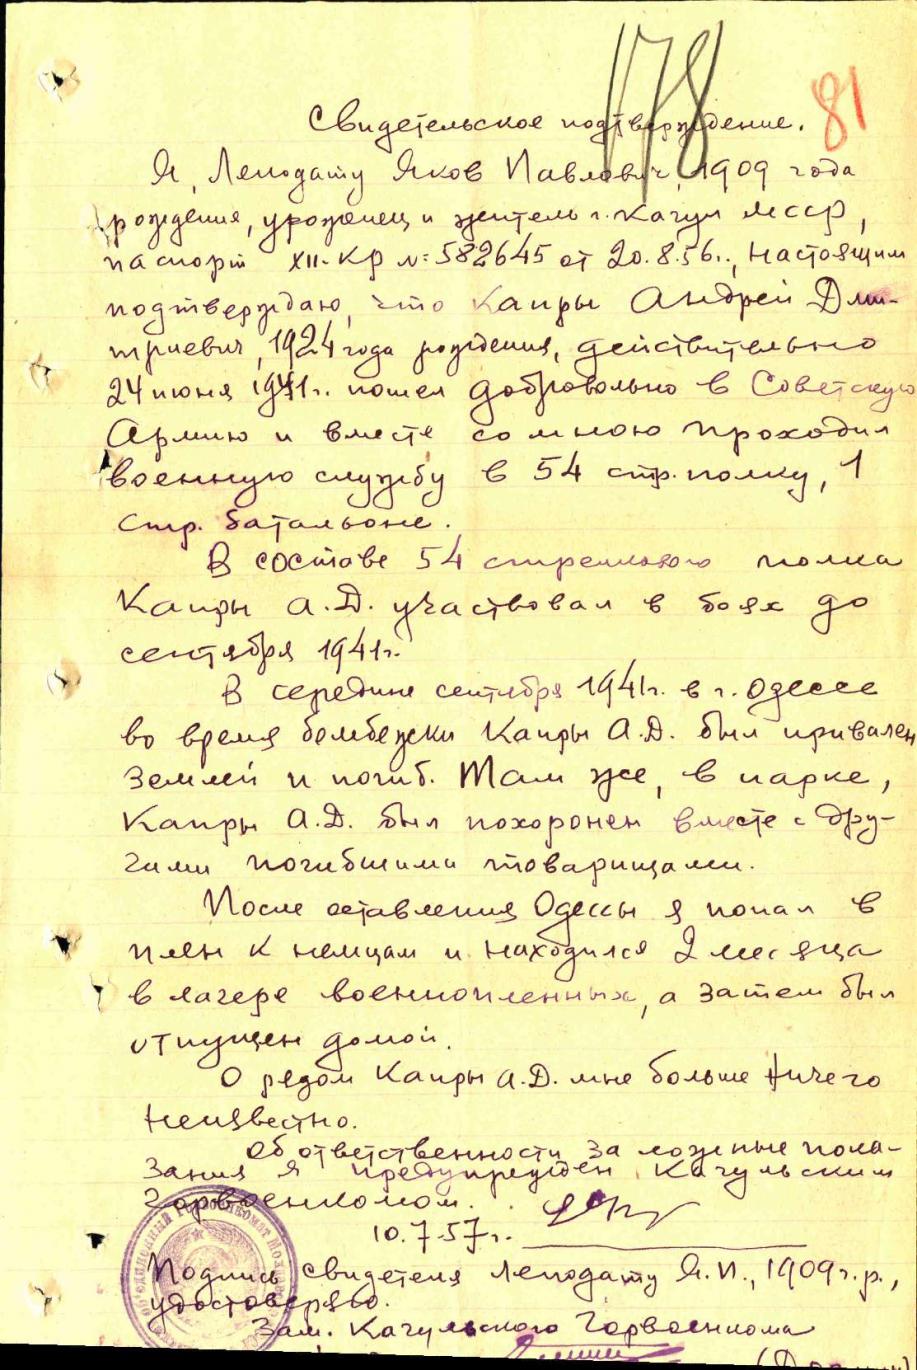 178
81
Свидетельское подтверждение.
Я, Леподату Яков Павлович, 1909 года
рождения, уроженец и житель г. Кагул МССР,
паспорт XII-КР №582645 от 20.8.56г., настоящим
подтверждаю, что Капры Андрей Дми-
триевич, 1924 года рождения, действительно
24 июня 1941г. пошел добровольно в Советскую
Армию и вместе со мною проходил
военную службу в 54 стр. полку, 1
стр. батальоне.
В составе 54 стрелкового полка
Капры А.Д. участвовал в боях до
сентября 1941г.
В середине сентября 1941г. в г. Одессе
во время бомбежки Капры А.Д. был привален
землей и погиб. Там же, в парке,
Капры А.Д. был похоронен вместе с дру-
гими погибшими товарищами.
После оставления Одессы я попал в
плен к немцам и находился 2 месяца
в лагере военнопленных, а затем был
отпущен домой.
О редом Капры А.Д. мне больше ничего
неизвестно.
Об ответственности за ложные пока-
зания я предупрежден Кагульским
Горвоенкомом.
10.7.57г.
Подпись свидетеля Леподату Я.П., 1909г.р.,
удостоверяю.
Зам. Кагульского Горвоенкома